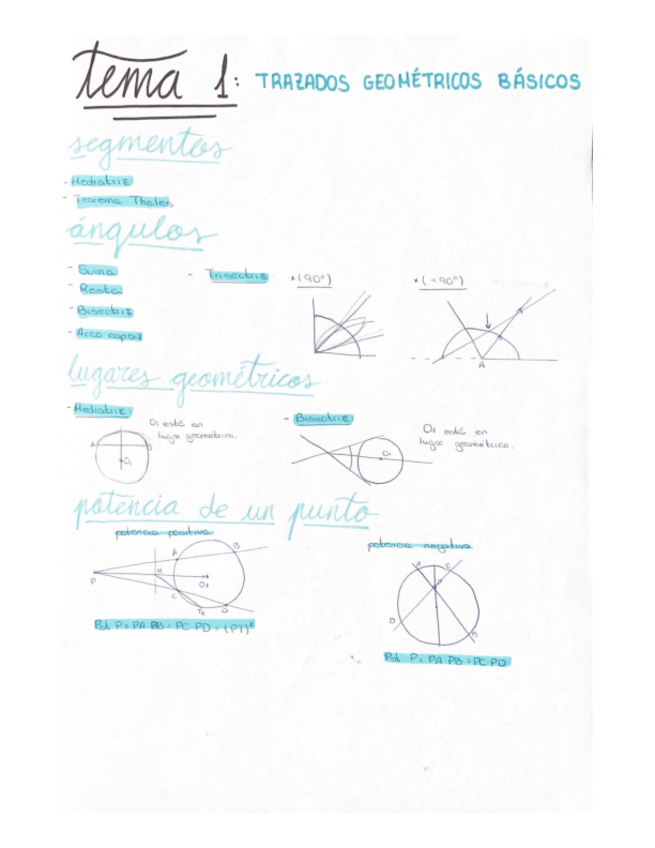 tema 1: TRAZADOS GEOMÉTRICOS BÁSICOS
segmentos
- Mediatriz
- Teorema Thales
ángulos
- Suma
- Resta
- Bisectriz
- Arco capaz
- Trisectriz
*(90°)
*(<90°)
A
lugares geométricos
- Mediatriz
O1 está en
lugar geométrico.
A
B
O1
- Bisectriz
O1 está en
lugar geométrico.
O1
potencia de un punto
potencia positiva
P
A
B
H
C
T1
D
Pot P = PA·PB = PC·PD = (PT)²
potencia negativa
C
P
D
B
Pot P = PA·PB = PC·PD